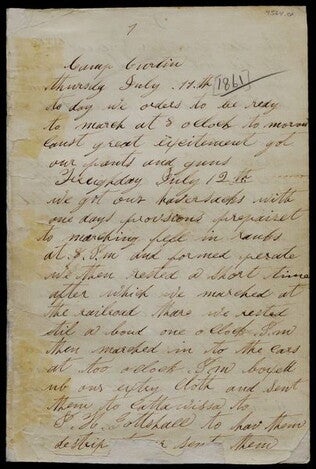 7
Camp Curtin
thursday July 11th 1861
to day we orders to be redy
to march at 8 oclock to morow
caust great exjitement got
our pants and guns
Freighday July 12th
we got our haversacks with
one days provisions prepairet
to marching fell in ranks
at 8. P.m and formed perade
we then rested a short time
after which we marched at
the railroad thare we rested
till a bout one oclock P.m
then marched in to the cars
at too oclock P.m
ub our cloth and sent
them to Cattawissa to
to hav them
sent them